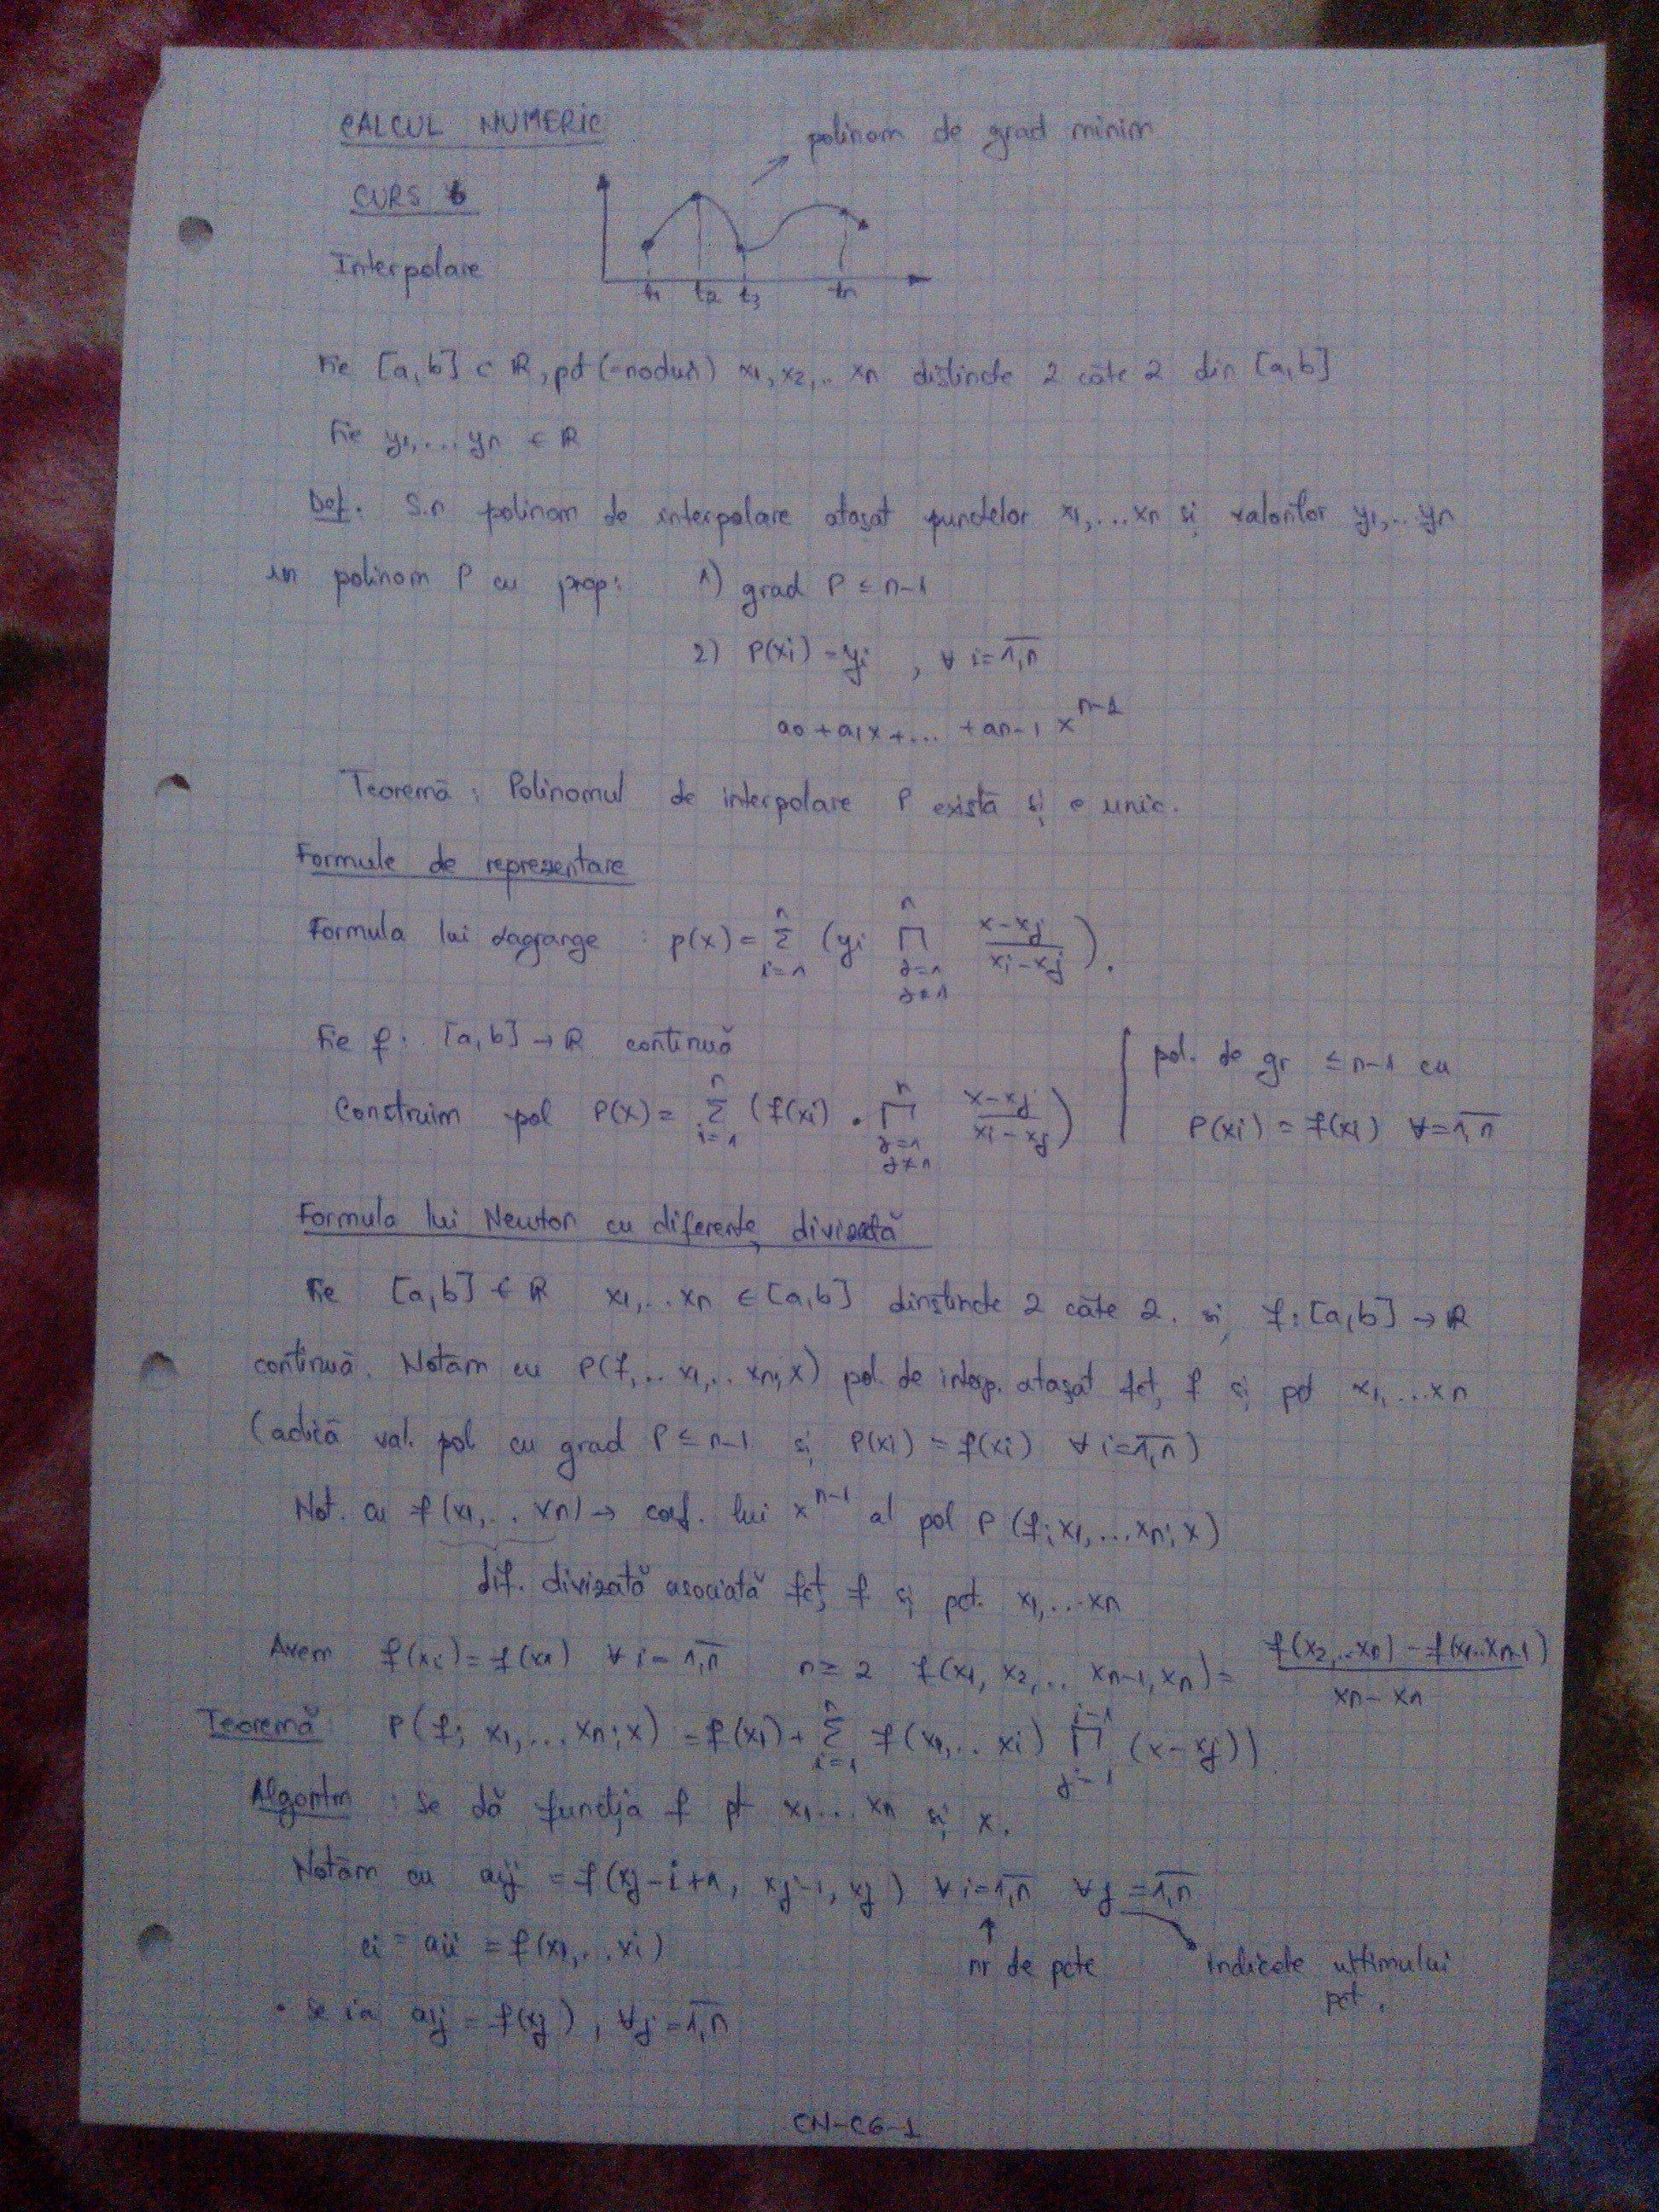 CALCUL NUMERIC
polinom de grad minim
CURS 6
Interpolare
t1 t2 t3 tn
Fie [a,b] ⊂ ℝ, pct (=noduri) x1, x2, .. xn distincte 2 câte 2 din [a,b]
Fie y1, ... yn ∈ ℝ
Def. S.n polinom de interpolare atașat punctelor x1, ... xn și valorilor y1, .. yn
un polinom P cu prop: 1) grad P ≤ n-1
2) P(xi) = yi , ∀ i = 1,n
a0 + a1x + ... + an-1 x^n-1
Teoremă : Polinomul de interpolare P există și e unic.
Formule de reprezentare
Formula lui Lagrange : p(x) = Σ_{i=1}^{n} (yi ∏_{j=1, j≠1}^{n} (x-xj)/(xi-xj)).
Fie f: [a,b] → ℝ continuă
pol. de gr ≤ n-1 cu
Construim pol P(x) = Σ_{i=1}^{n} (f(xi) · ∏_{j=1, j≠n}^{n} (x-xj)/(xi-xj))
P(xi) = f(xi) ∀ = 1,n
Formula lui Newton cu diferențe divizată
Fie [a,b] ∈ ℝ x1, .. xn ∈ [a,b] dinstincte 2 câte 2. și f: [a,b] → ℝ
continuă. Notăm cu P(f, .. x1, .. xn; x) pol. de interp. atașat fct, f și pct x1, ... xn
(adică val. pol cu grad P ≤ n-1 și P(xi) = f(xi) ∀ i = 1,n)
Not. cu f(x1, .. xn) → coef. lui x^n-1 al pol P (f; x1, ... xn; x)
dif. divizată asociată fct, f și pct. x1, ... xn
Avem f(xi) = f(xi) ∀ i = 1,n n ≥ 2 f(x1, x2, .. xn-1, xn) = (f(x2, .. xn) - f(x1 .. xn-1))/(xn - xn)
Teoremă P(f; x1, ... xn; x) = f(x1) + Σ_{i=1}^{n} f(x1, .. xi) ∏_{j=1}^{i-1} (x-xj))
Algoritm : Se dă funcția f pt x1 ... xn și x.
Notăm cu aij = f(xj-i+1, xj-1, xj) ∀ i = 1,n ∀ j = 1,n
ci = aii = f(x1, .. xi)
nr de pcte
indicele ultimului
pct.
• se ia a1j = f(xj), ∀j = 1,n
CN-C6-1